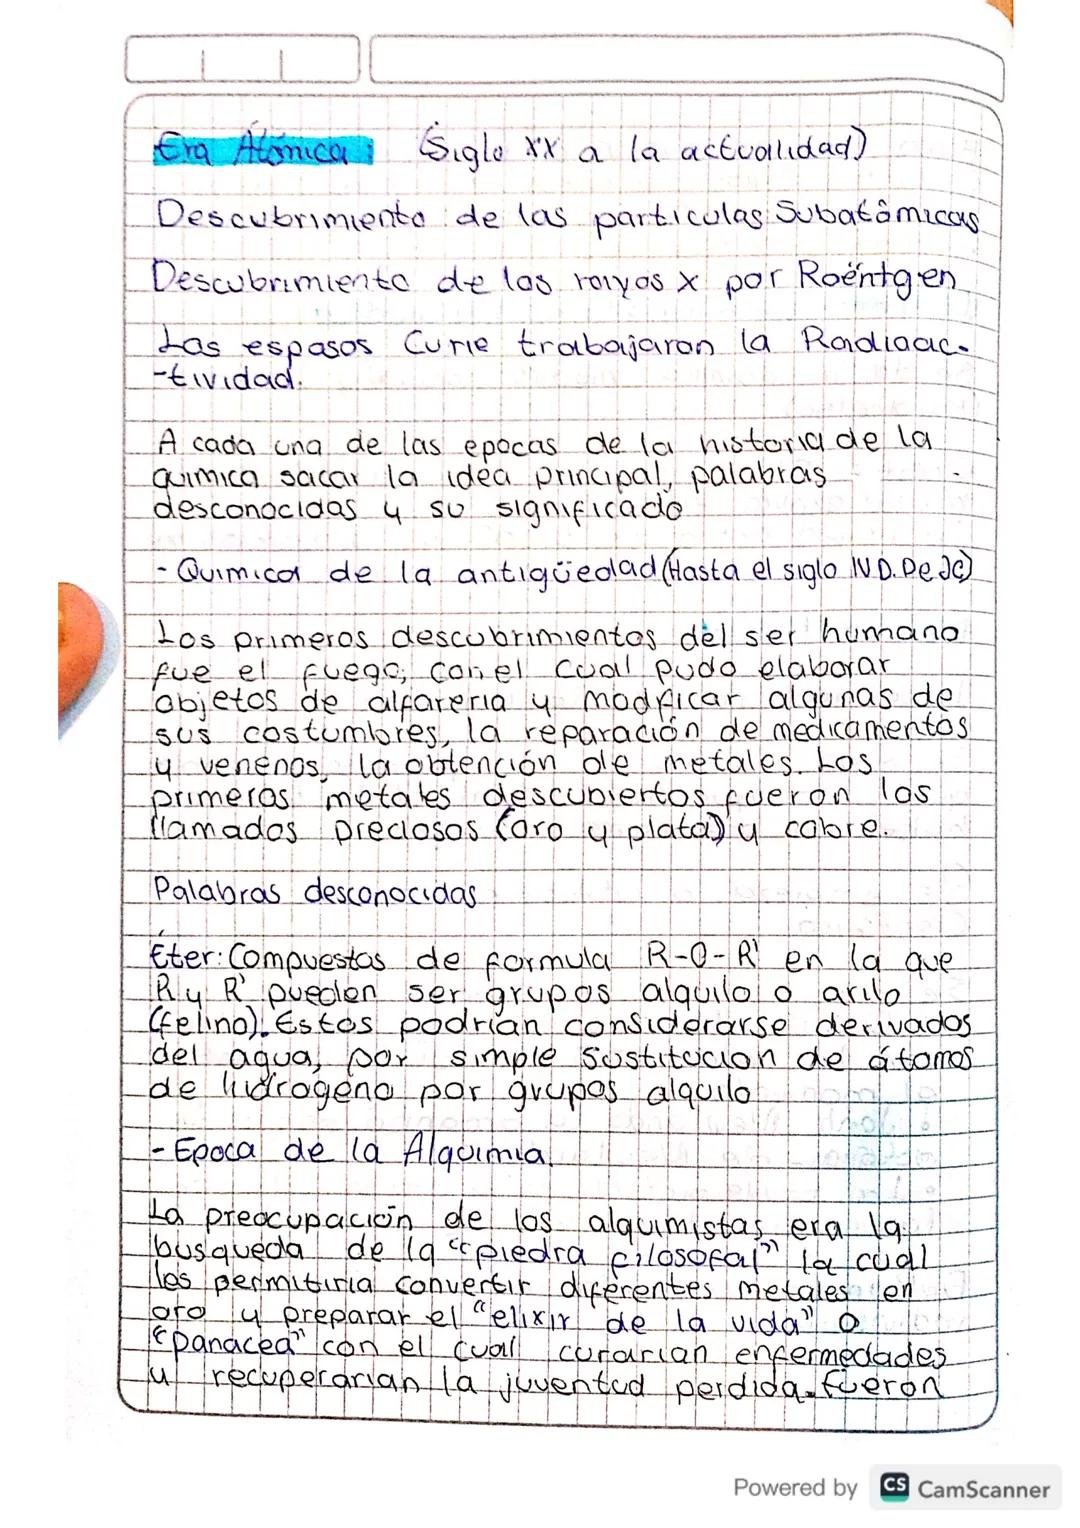 Era Atómica: (Siglo XX a la actualidad)
Descubrimiento de las particulas Subatómicas
Descubrimiento de los rayos x por Roëntgen
Los esposos Curie trabajaron la Radioac-
-tividad.
A cada una de las epocas de la historia de la
quimica sacar la idea principal, palabras
desconocidas y su significado
- Quimica de la antigüedad (Hasta el siglo IV D. De JC)
Los primeros descubrimientos del ser humano
fue el fuego; con el cual pudo elaborar
objetos de alfareria y modficar algunas de
sus costumbres, la reparación de medicamentos
y venenos, la obtención de metales. Los
primeros metales descubiertos fueron los
llamados preciosos (oro y plata) y cobre.
Palabras desconocidas
Éter: Compuestos de formula R-O-R' en la que
R y R' pueden ser grupos alquilo o arilo
(felino). Estos podrían considerarse derivados
del agua, por simple sustitucion de átomos
de hidrogeno por grupos alquilo
- Epoca de la Alquimia.
La preocupación de los alquimistas era la
busqueda de la "piedra filosofal" la cual
les permitiria convertir diferentes metales en
oro y preparar el "elixir de la vida" o
"panacea" con el cual curarian enfermedades
y recuperarian la juventud perdida. Fueron
Powered by CS CamScanner